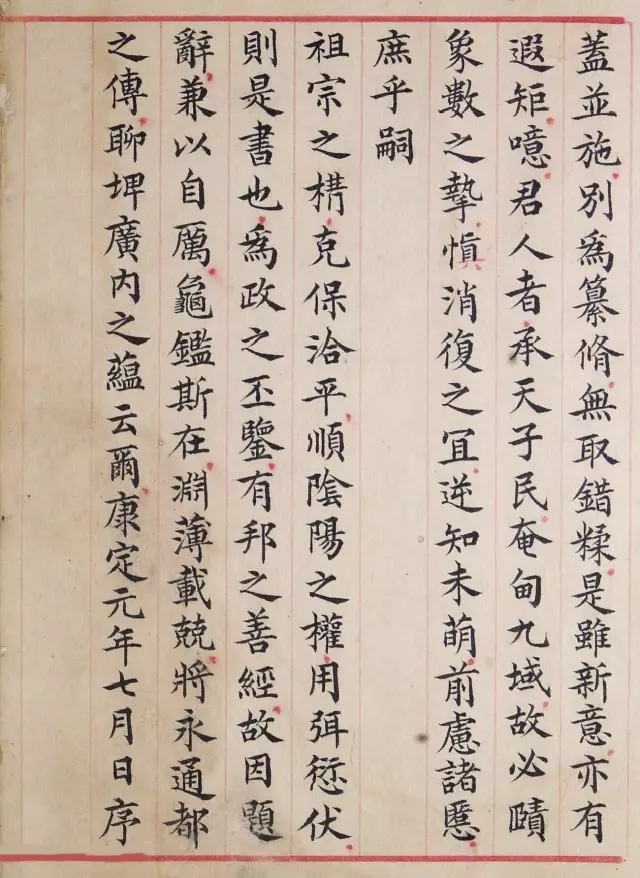 蓋並施別爲纂脩無取錯糅是雖新意亦有
遐矩噫君人者承天子民奄甸九域故必賾
象數之摯愼消復之宜逆知未萌前慮諸慝
庶乎嗣
祖宗之構克保洽平順陰陽之權用弭愆伏
則是書也爲政之丕鑒有邦之善經故因題
辭兼以自厲龜鑑斯在淵薄載兢將永通都
之傳聊埤廣內之蘊云爾康定元年七月日序